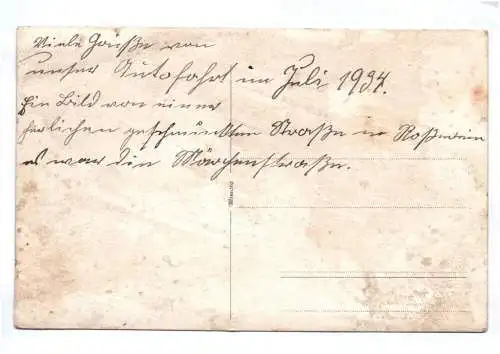 Viele Grüße von
unser Autofahrt im Juli 1934.
Ein Bild von einer
herlichen geschmückten Straße in Roßwein
es war die Märchenstraße.